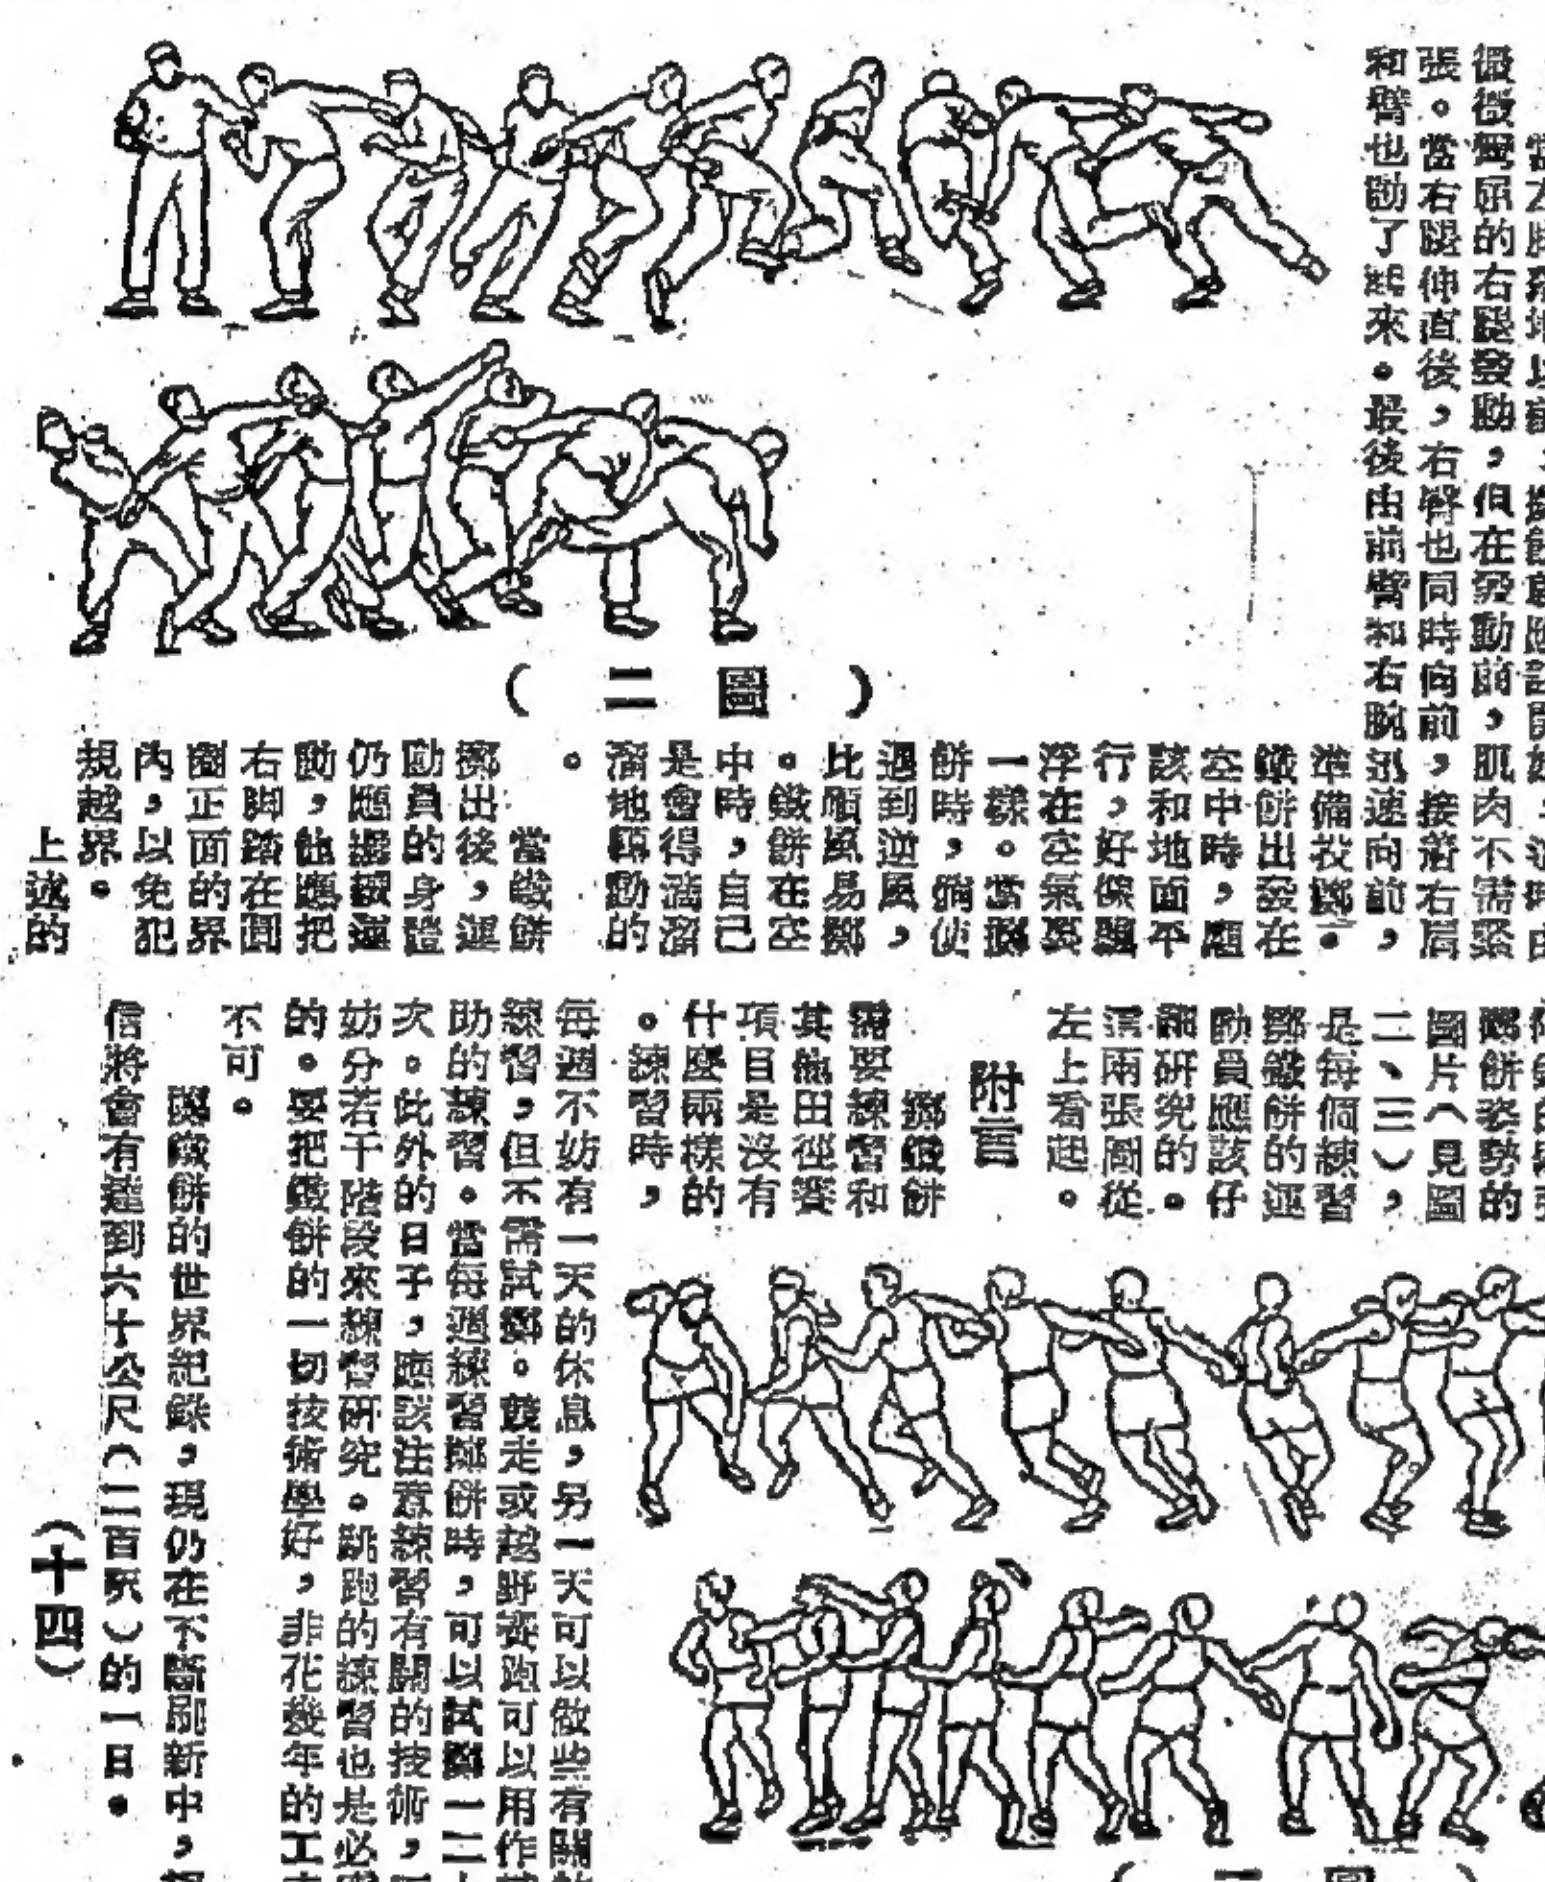 微微彎屈的右腿發動，但在發動前，肌肉不需緊
張。當右腿伸直後，右臂也同時向前，接着右肩
和臂也動了起來。最後由前臂和右腕迅速向前，
準備投擲。
鐵餅出發在
空中時，應
該和地面平
行，好像飄
浮在空氣裏
一樣。當擲
餅時，倘使
遇到逆風，
比順風易擲
。鐵餅在空
中時，自己
是會得溜溜
溜地轉動的
。
當鐵餅
擲出後，運
動員的身體
仍應繼續運
動，他應把
右脚踏在圓
圈正面的界
內，以免犯
規越界。
上述的
（圖二）
擲餅姿勢的
圖片（見圖
二、三），
是每個練習
擲鐵餅的運
動員應該仔
細研究的。
這兩張圖從
左上看起。
附言
擲鐵餅
需要練習和
其他田徑賽
項目是沒有
什麼兩樣的
。練習時，
每週不妨有一天的休息，另一天可以做些有關
練習，但不需試擲。競走或越野賽跑可以用作
助的練習。當每週練習擲餅時，可以試擲一二
次。此外的日子，應該注意練習有關的技術，
妨分若干階段來練習研究。跳跑的練習也是必
的。要把鐵餅的一切技術學好，非花幾年的工
不可。
擲鐵餅的世界紀錄，現仍在不斷刷新中，
信將會有達到六十公尺（二百呎）的一日。
（十四）